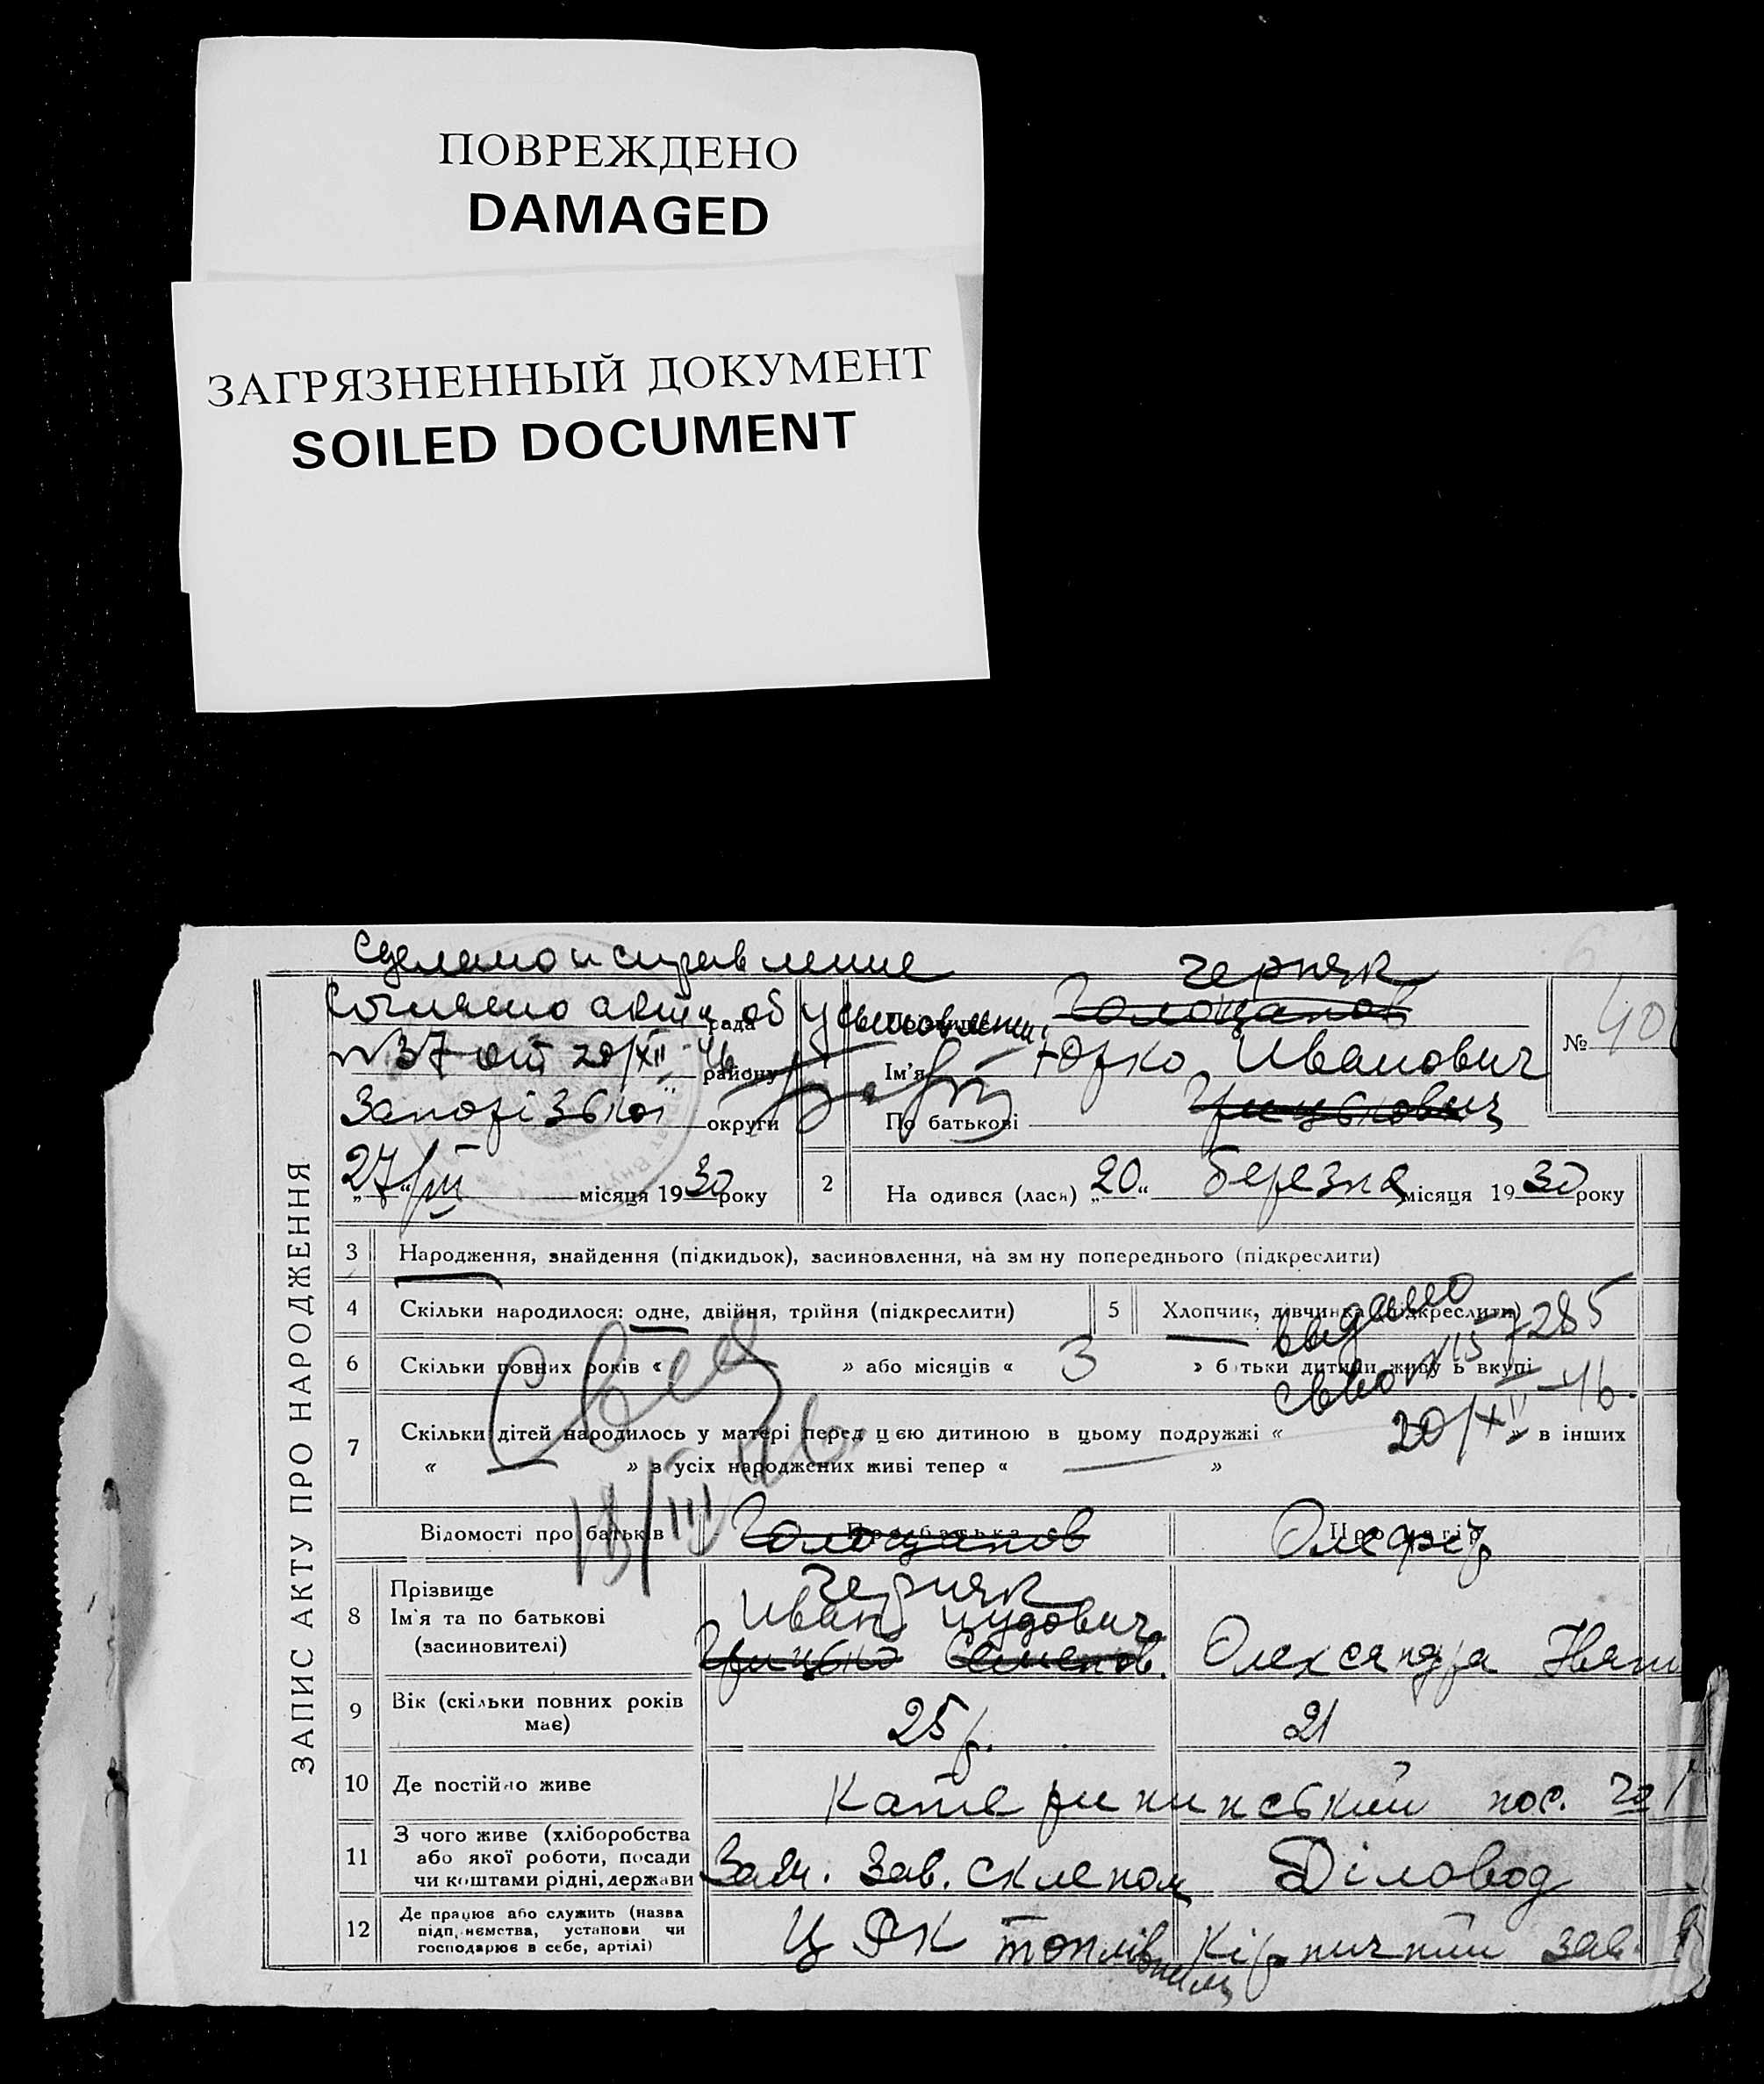 ПОВРЕЖДЕНО
DAMAGED
ЗАГРЯЗНЕННЫЙ ДОКУМЕНТ
SOILED DOCUMENT
ЗАПИС АКТУ ПРО НАРОДЖЕННЯ
Сделано исправление
Согласно акта об усыновлении
рада
№37 от 20/XII 46
району
Запорізької округи
27/III місяця 1930 року
Черняк
Голощапов
Ім'я Юрко Иванович
По батькові Грицькович
№ 40
2 На одився (лась) „20“ березня місяця 1930 року
3 Народження, знайдення (підкидьок), засиновлення, на зм ну попереднього (підкреслити)
4 Скільки народилося: одне, двійня, трійня (підкреслити)
5 Хлопчик, дівчинка (підкреслити)
выдано
7285
6 Скільки повних років « » або місяців « 3 » б тьки дитини живу ь вкупі
20/XII 46.
7 Скільки дітей народилось у матері перед цею дитиною в цьому подружжі « в інших
« » з усіх народжених живі тепер « »
18/III 46
Відомості про батьків
Про батька
Голощапов
8 Прізвище
Ім'я та по батькові
(засиновителі)
Черняк
Иван
Грицько Семенов.
Олександра
9 Вік (скільки повних років має) 25 р. 21
10 Де постійно живе Катерининський пос.
11 З чого живе (хліборобства
або якої роботи, посади
чи коштами рідні, держави
Зам. Зав. складом
Діловод
12 Де працює або служить (назва
підп, иємства, установи чи
господарює в себе, артілі)
ЦРК
Кірпичний зав.